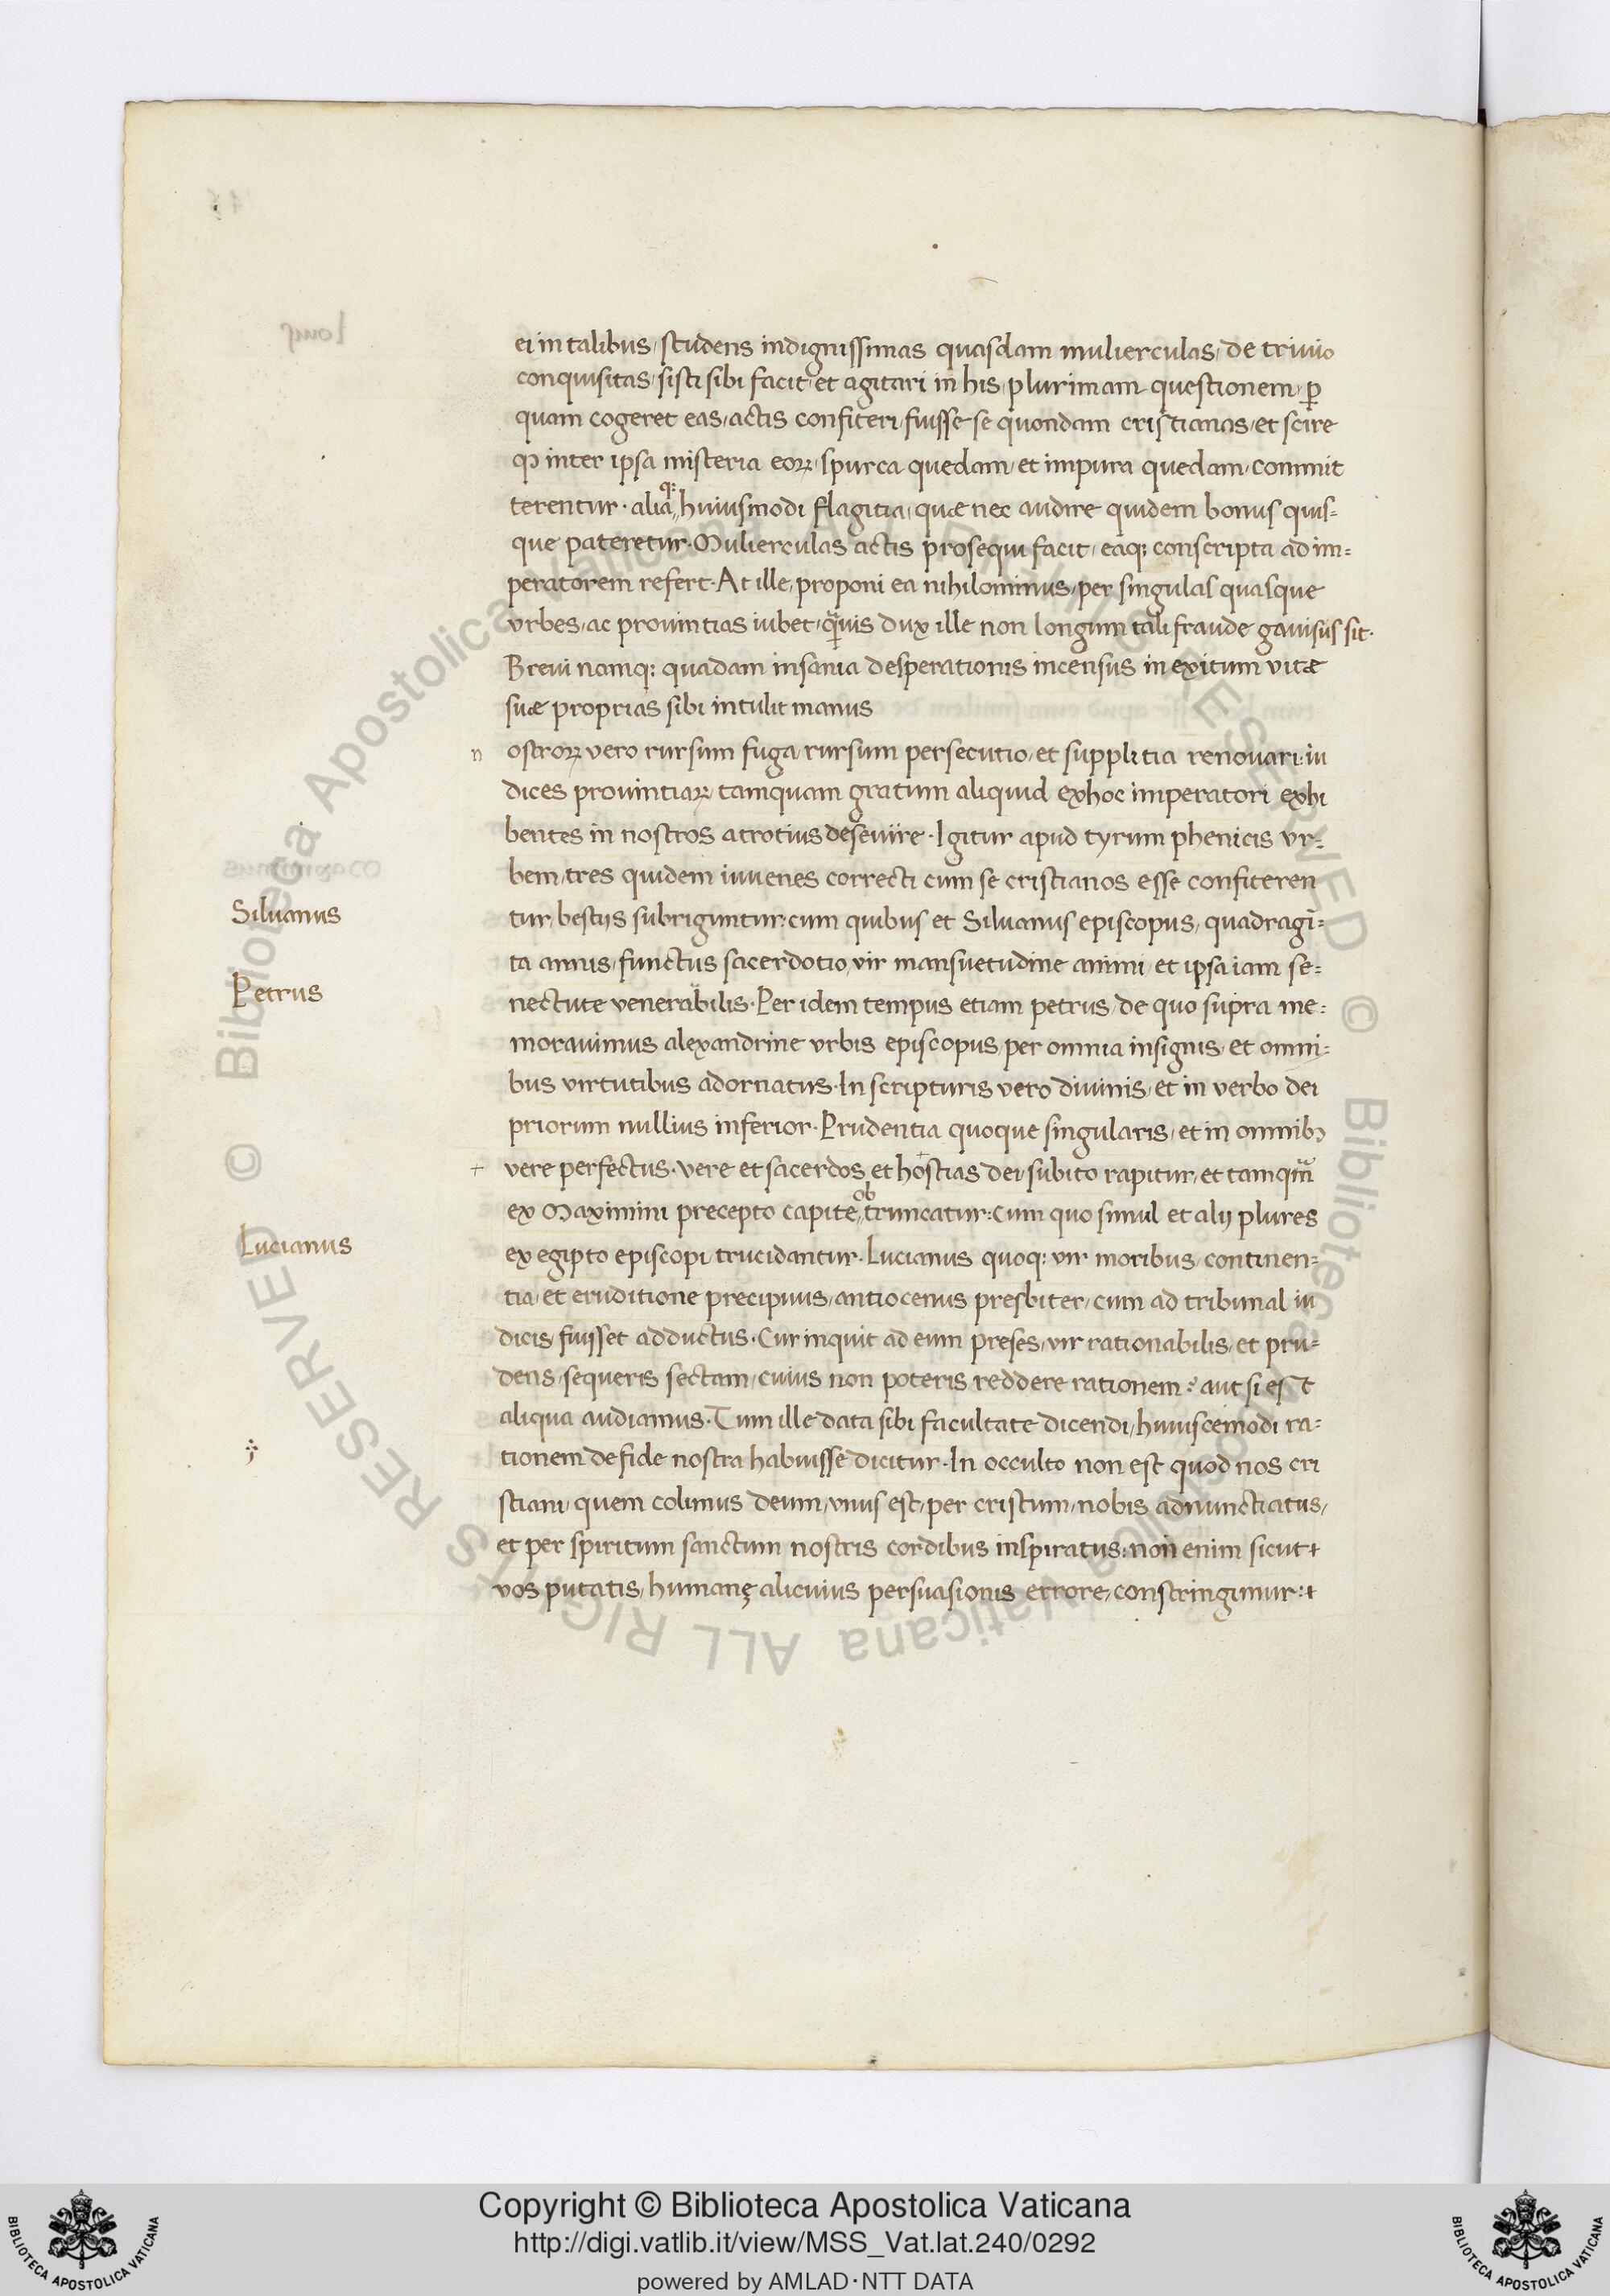 ei in talibus, studens indignissimas quasdam mulierculas, de trivio
conquisitas, sisti sibi facit, et agitari in his, plurimam questionem, ꝑ
quam cogeret eas, actis confiteri, fuisse se quondam cristianas, et scire
ꝙ inter ipsa misteria eoꝝ, spurca quedam, et impura quedam, commit
q:
terentur · alia,, huiusmodi flagitia, quæ nec audire quidem bonus quis-
que pateretur · Mulierculas actis prosequi facit, eaq; conscripta ad im-
peratorem refert · At ille, proponi ea nihilominus, per singulas quasque
urbes, ac provintias iubet, q̃vis dux ille non longum tali fraude gavisus sit ·
Brevi namq: quadam insania desperationis incensus in exitum vitæ
suæ proprias sibi intulit manus
n ostroꝝ vero rursum fuga, rursum persecutio, et supplitia renovari: iu
dices provintiaꝝ, tamquam gratum aliquid exhoc imperatori exhi
bentes in nostros atrotius desevire · Igitur apud tyrum phenicis ur-
bem, tres quidem iuvenes correcti cum se cristianos esse confiteren
Silvanus
tur, bestijs subriguntur: cum quibus et Silvanus episcopus, quadragī-
ta annis, functus sacerdotio, vir mansuetudine animi, et ipsa iam se-
Petrus
nectute venerabilis · Per idem tempus etiam petrus, de quo supra me-
moravimus alexandrine urbis episcopus, per omnia insignis, et omni-
bus virtutibus adornatus · In scripturis vero divinis, et in verbo dei
priorum nullius inferior · Prudentia quoque singularis, et in omnibꝰ
+ vere perfectus · vere et sacerdos, et hostias dei, subito rapitur, et tamqm̃
ob
ex Maximini precepto capite,, truncatur: Cum quo simul et alij plures
Lucianus
ex egipto episcopi, trucidantur · Lucianus quoq: vir moribus, continen-
tia, et eruditione precipuus, antiocenus presbiter, cum ad tribunal iu
dicis, fuisset adductus · Cur inquit ad eum preses, vir rationabilis, et pru-
dens, sequeris sectam, cuius non poteris reddere rationem? aut si est
aliqua audiamus · Tum ille data sibi facultate dicendi, huiuscemodi ra-
tionem de fide nostra habuisse dicitur · In occulto non est quod nos cri
stiani, quem colimus deum, unus est, per cristum, nobis adnunctiatus,
et per spiritum sanctum nostris cordibus inspiratus: non enim sicut
vos putatis, humanę alicuius persuasionis errore, constringimur:
© Biblioteca Apostolica Vaticana ALL RIGHTS RESERVED
© Biblioteca Apostolica Vaticana ALL RIGHTS RESERVED
Copyright © Biblioteca Apostolica Vaticana
http://digi.vatlib.it/view/MSS_Vat.lat.240/0292
powered by AMLAD·NTT DATA
BIBLIOTECA APOSTOLICA VATICANA
BIBLIOTECA APOSTOLICA VATICANA